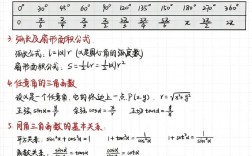 0° 30° 45° 60° 90° 120° 135° 150° 180° 270° 360°
0 π/6 π/4 π/3 π/2 2π/3 3π/4 5π/6 π 3π/2 2π
3. 弧长及扇形面积公式
弧长公式: l=|α|r (α是圆心角的弧度数)
扇形面积公式: S=½lr=½|α|r²
4. 任意角的三角函数
设α是一个任意角,它的终边上一点P(x,y). r=√x²+y²
正弦 sinα=y/r 余弦 cosα=x/r 正切 tanα=y/x
5. 同角三角函数的基本关系:
平方关系: sin²α+cos²α=1 1+tan²α=1/cos²α
商数关系: sinα/cosα=tanα